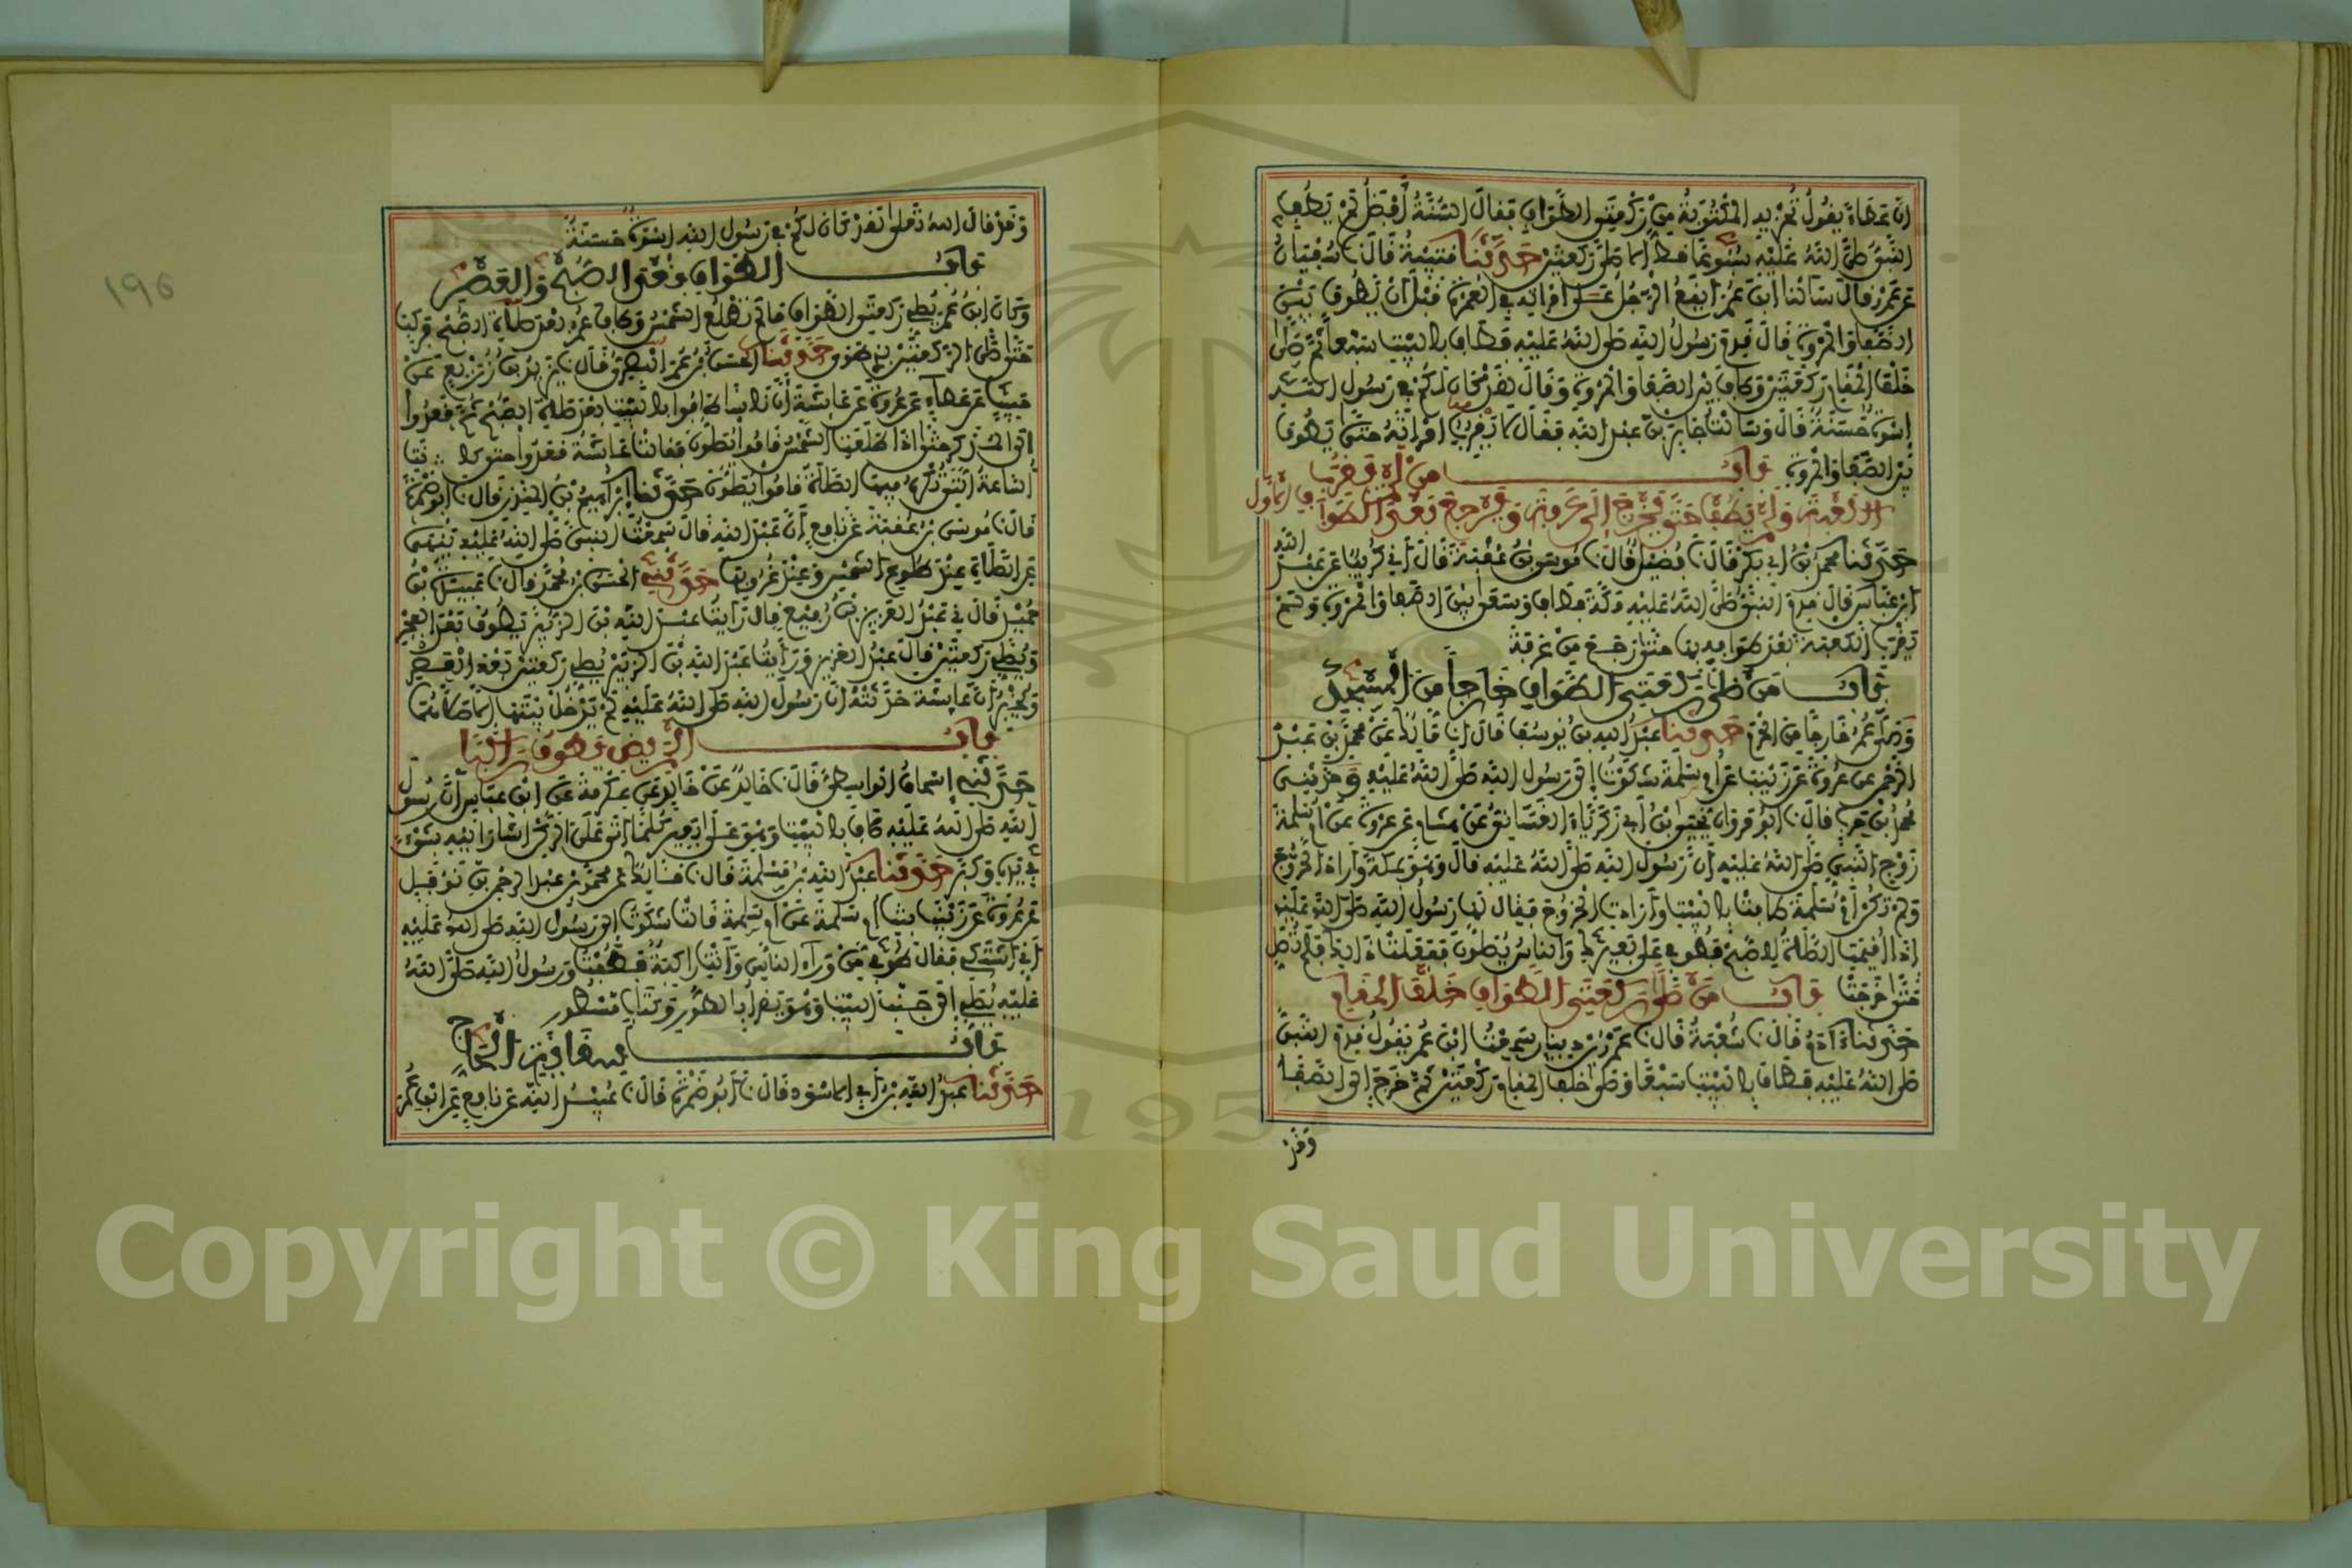 ان عطاء يقول تجزيه المكتوبة من ركعتي الطواف فقال السنة أفضل لم يطف
النبي صلى الله عليه سبوعا قط إلا صلى ركعتين حدثنا قتيبة قال نا سفين
عن عمرو قال سألنا ابن عمر أيقع الرجل على امرأته في العمرة قبل أن يطوف بين
الصفا والمروة قال قدم رسول الله صلى الله عليه فطاف بالبيت سبعا ثم صلى
خلف المقام ركعتين وطاف بين الصفا والمروة وقال لقد كان لكم في رسول الله
إسوة حسنة قال وسألت جابر بن عبد الله فقال لا يقرب امرأته حتى يطوف
بين الصفا والمروة باب من لم يقرب
الكعبة ولم يطف حتى يخرج إلى عرفة ويرجع بعد الطواف الأول
حدثنا محمد بن أبي بكر قال نا فضيل قال نا موسى بن عقبة قال أني كريب عن عبد الله
ابن عباس قال قدم النبي صلى الله عليه مكة فطاف وسعى بين الصفا والمروة ولم
يقرب الكعبة بعد طوافه بها حتى رجع من عرفة
باب من صلى ركعتي الطواف خارجا من المسجد
وصلى عمر خارجا من الحرم حدثنا عبد الله بن يوسف قال أنا مالك عن محمد بن عبد
الرحمن عن عروة عن زينب عن أم سلمة شكوت إلى رسول الله صلى الله عليه وحدثني
محمد بن حرب قال نا أبو مروان يحيى بن أبي زكرياء الغساني عن هشام عن عروة عن أم سلمة
زوج النبي صلى الله عليه أن رسول الله صلى الله عليه قال وهو بمكة وأراد الخروج
ولم تكن أم سلمة طافت بالبيت وأرادت الخروج فقال لها رسول الله صلى الله عليه
إذا أقيمت الصلاة للصبح فطوفي على بعيرك والناس يصلون ففعلت ذلك فلم تصل
حتى خرجت باب من صلى ركعتي الطواف خلف المقام
حدثنا آدم قال نا شعبة قال نا عمرو بن دينار سمعت ابن عمر يقول قدم النبي
صلى الله عليه فطاف بالبيت سبعا وصلى خلف المقام ركعتين ثم خرج إلى الصفا
وقد
وقد قال الله تعلى لقد كان لكم في رسول الله إسوة حسنة
باب الطواف بعد الصبح والعصر
وكان ابن عمر يصلي ركعتي الطواف ما لم تطلع الشمس وطاف عمر بعد صلاة الصبح فركب
حتى صلى الركعتين بذي طوى حدثنا الحسن بن عمر البصري قال نا يزيد بن زريع عن
حبيب عن عطاء عن عروة عن عائشة أن ناسا طافوا بالبيت بعد صلاة الصبح ثم قعدوا
إلى المذكر حتى إذا طلعت الشمس قاموا يصلون فقالت عائشة قعدوا حتى كانت
الساعة التي تكره فيها الصلاة قاموا يصلون حدثنا إبراهيم بن المنذر قال نا أبو ضمرة
قال نا موسى بن عقبة عن نافع أن عبد الله قال سمعت النبي صلى الله عليه ينهى
عن الصلاة عند طلوع الشمس وعند غروبها حدثني الحسن بن محمد قال نا عبيدة بن
حميد قال ني عبد العزيز بن رفيع قال رأيت عبد الله بن الزبير يطوف بعد الفجر
ويصلي ركعتين قال عبد العزيز ورأيت عبد الله بن الزبير يصلي ركعتين بعد العصر
ويخبر أن عائشة حدثته أن رسول الله صلى الله عليه لم يدخل بيتها إلا صلاهما
باب المريض يطوف راكبا
حدثني إسحاق الواسطي قال نا خالد عن خالد عن عكرمة عن ابن عباس أن رسول
الله صلى الله عليه طاف بالبيت وهو على بعير كلما أتى على الركن أشار إليه بشيء
في يده وكبر حدثنا عبد الله بن مسلمة قال نا مالك عن محمد بن عبد الرحمن بن نوفل
عن عروة عن زينب بنت أم سلمة عن أم سلمة قالت شكوت إلى رسول الله صلى الله عليه
أني أشتكي فقال طوفي من وراء الناس وأنت راكبة فطفت ورسول الله صلى الله
عليه يصلي إلى جنب البيت وهو يقرأ بالطور وكتاب مسطور
باب سقاية الحاج
حدثنا عبد الله بن أبي الاسود قال نا أبو ضمرة قال نا عبيد الله عن نافع عن ابن عمر
١٩٥
1957
Copyright © King Saud University